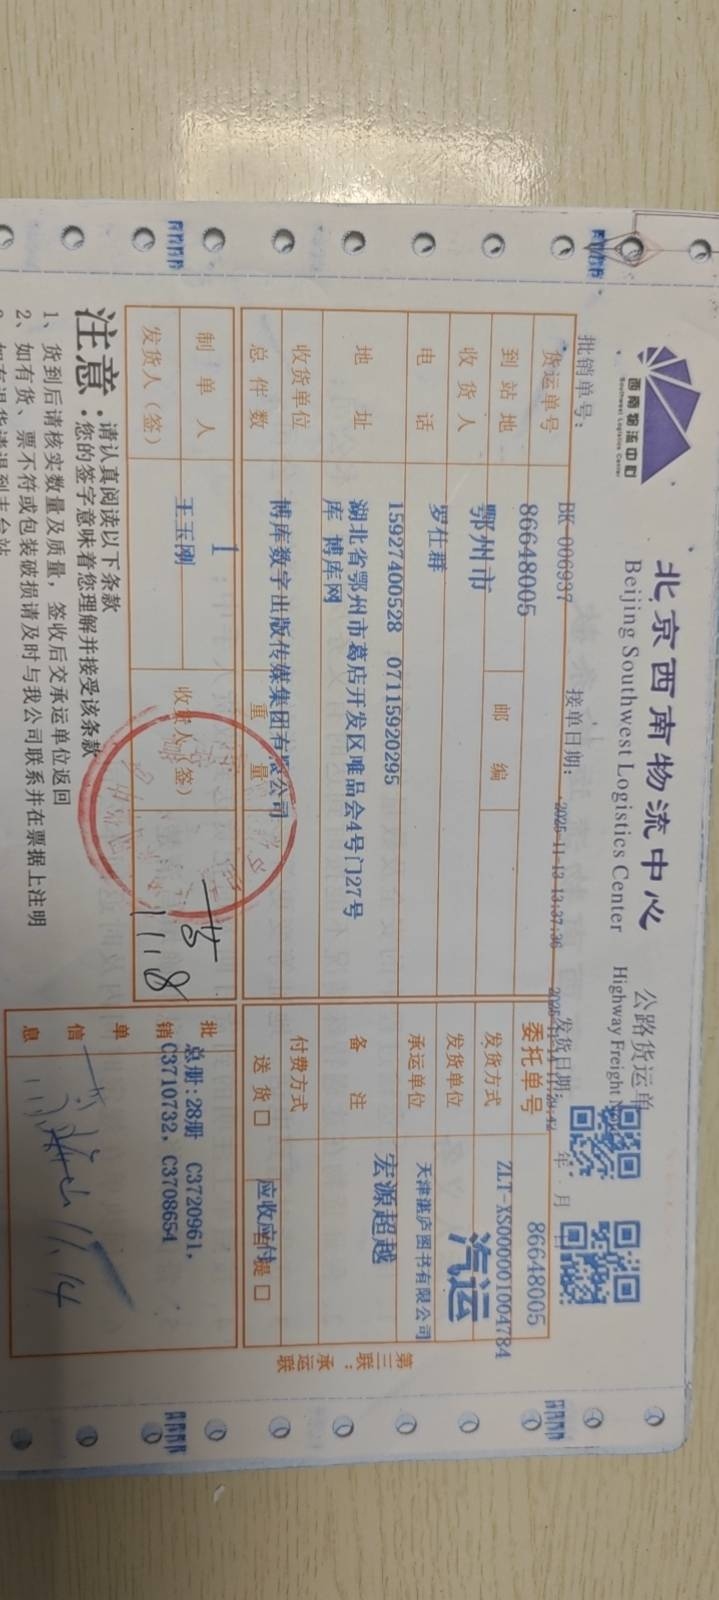 西南物流中心
Southwest Logistics Center
北京西南物流中心
Beijing Southwest Logistics Center
公路货运单
Highway Freight
批销单号: BK-006937
接单日期: 2025-11-13 13:37:36
发货日期: 年 月
货运单号 86648005
委托单号 86648005
到站地 鄂州市
邮编
发货方式 ZLT-XS000001004784
汽运
收货人 罗仕群
发货单位 天津湛庐图书有限公司
电话 15927400528 07115920295
承运单位 宏源超越
地址 湖北省鄂州市葛店开发区唯品会4号门27号
库 博库网
备注
收货单位 博库数字出版传媒集团有限公司
付费方式 应收应付
总件数 1
重量
送货□ 提□
制单人 王玉刚
收货人(签)
11.18
发货人(签)
批销单信息
总册:28册 C3720961,
C3710732, C3708654
11.14
第三联:承运联
注意:
请认真阅读以下条款
您的签字意味着您理解并接受该条款
1、货到后请核实数量及质量,签收后交承运单位返回
2、如有货、票不符或包装破损请及时与我公司联系并在票据上注明